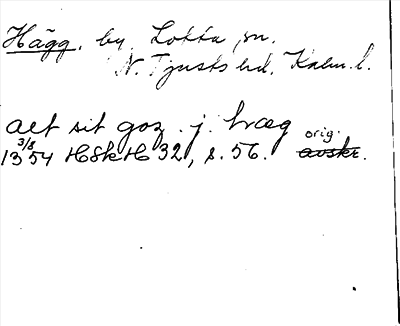 Hägg, by, Lofta sn.
N. Tjusts hd. Kalm. l.
alt sit goz. j. hræg orig.
3/8 1354 HSkH 32, s. 56. avskr.